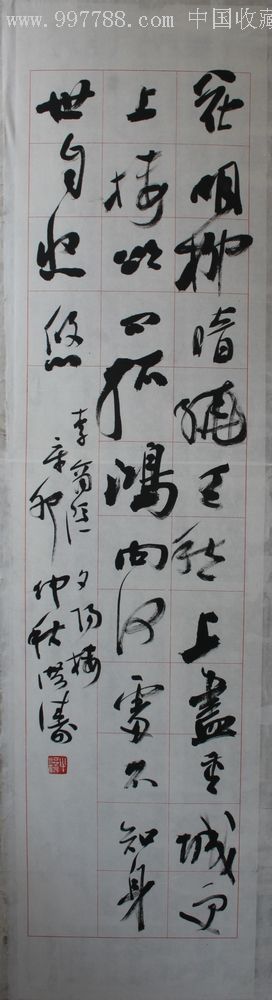 www.997788.com 中国收藏
花明柳暗繞天愁上盡重城更
上樓欲問孤鴻向何處不知身
世自悠悠
李商隱夕陽樓
辛卯仲秋